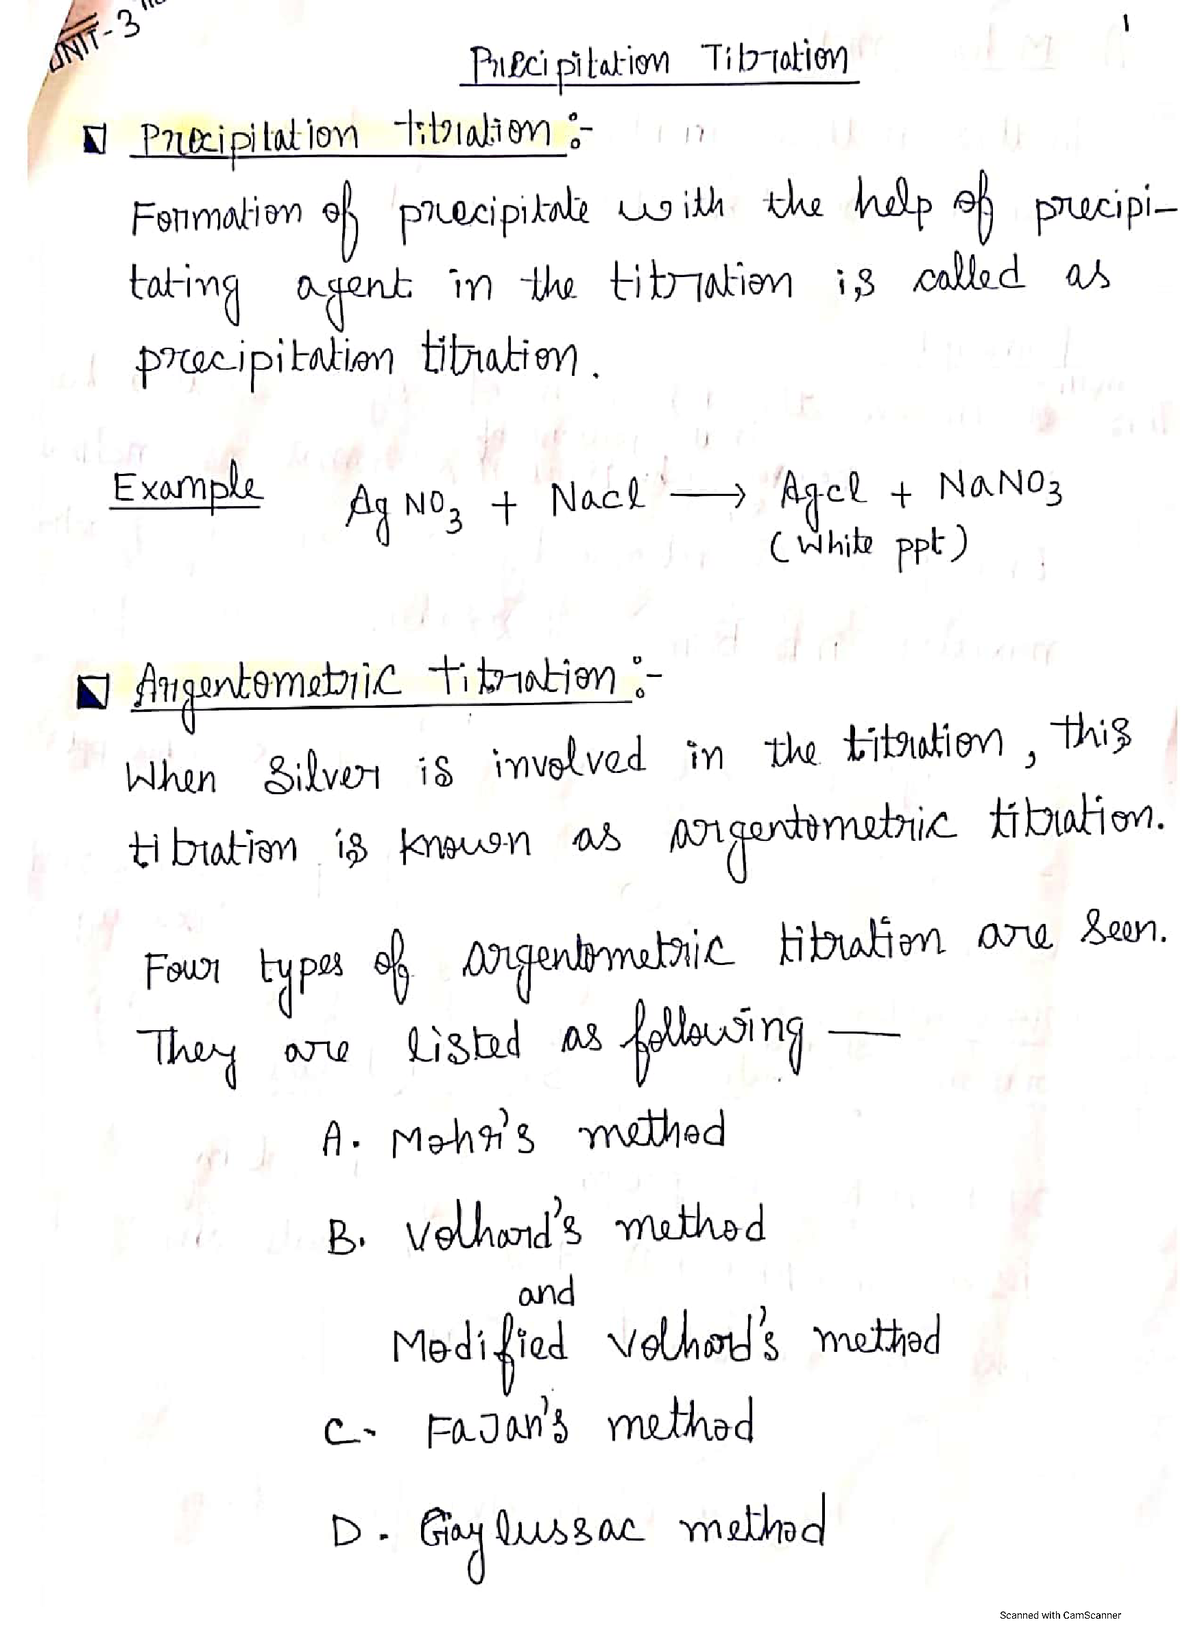 UNIT-3
1
Precipitation Titration
Precipitation titration :-
Formation of precipitate with the help of precipi-
tating agent in the titration is called as
precipitation titration.
Example AgNO3 + Nacl → Agcl + NaNO3
(White ppt)
Argentometric titration :-
When Silver is involved in the titration, this
titration is known as argentometric titration.
Four types of argentometric titration are seen.
They are listed as following —
A. Mohr's method
B. Volhard's method
and
Modified Volhard's method
C. FaJan's method
D. Gay lussac method
Scanned with CamScanner